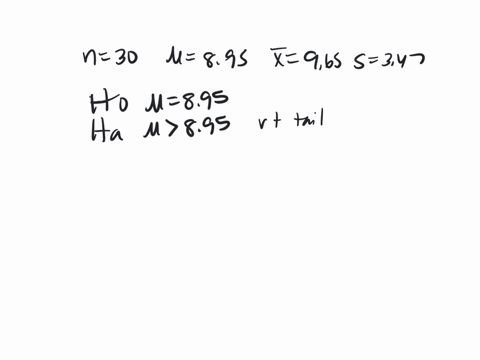 n=30 μ=8.95 x̄=9.65 s=3.47
Ho μ=8.95
Ha μ>8.95 rt tail